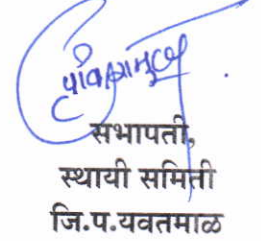 सभापती,
स्थायी समिती
जि.प.यवतमाळ